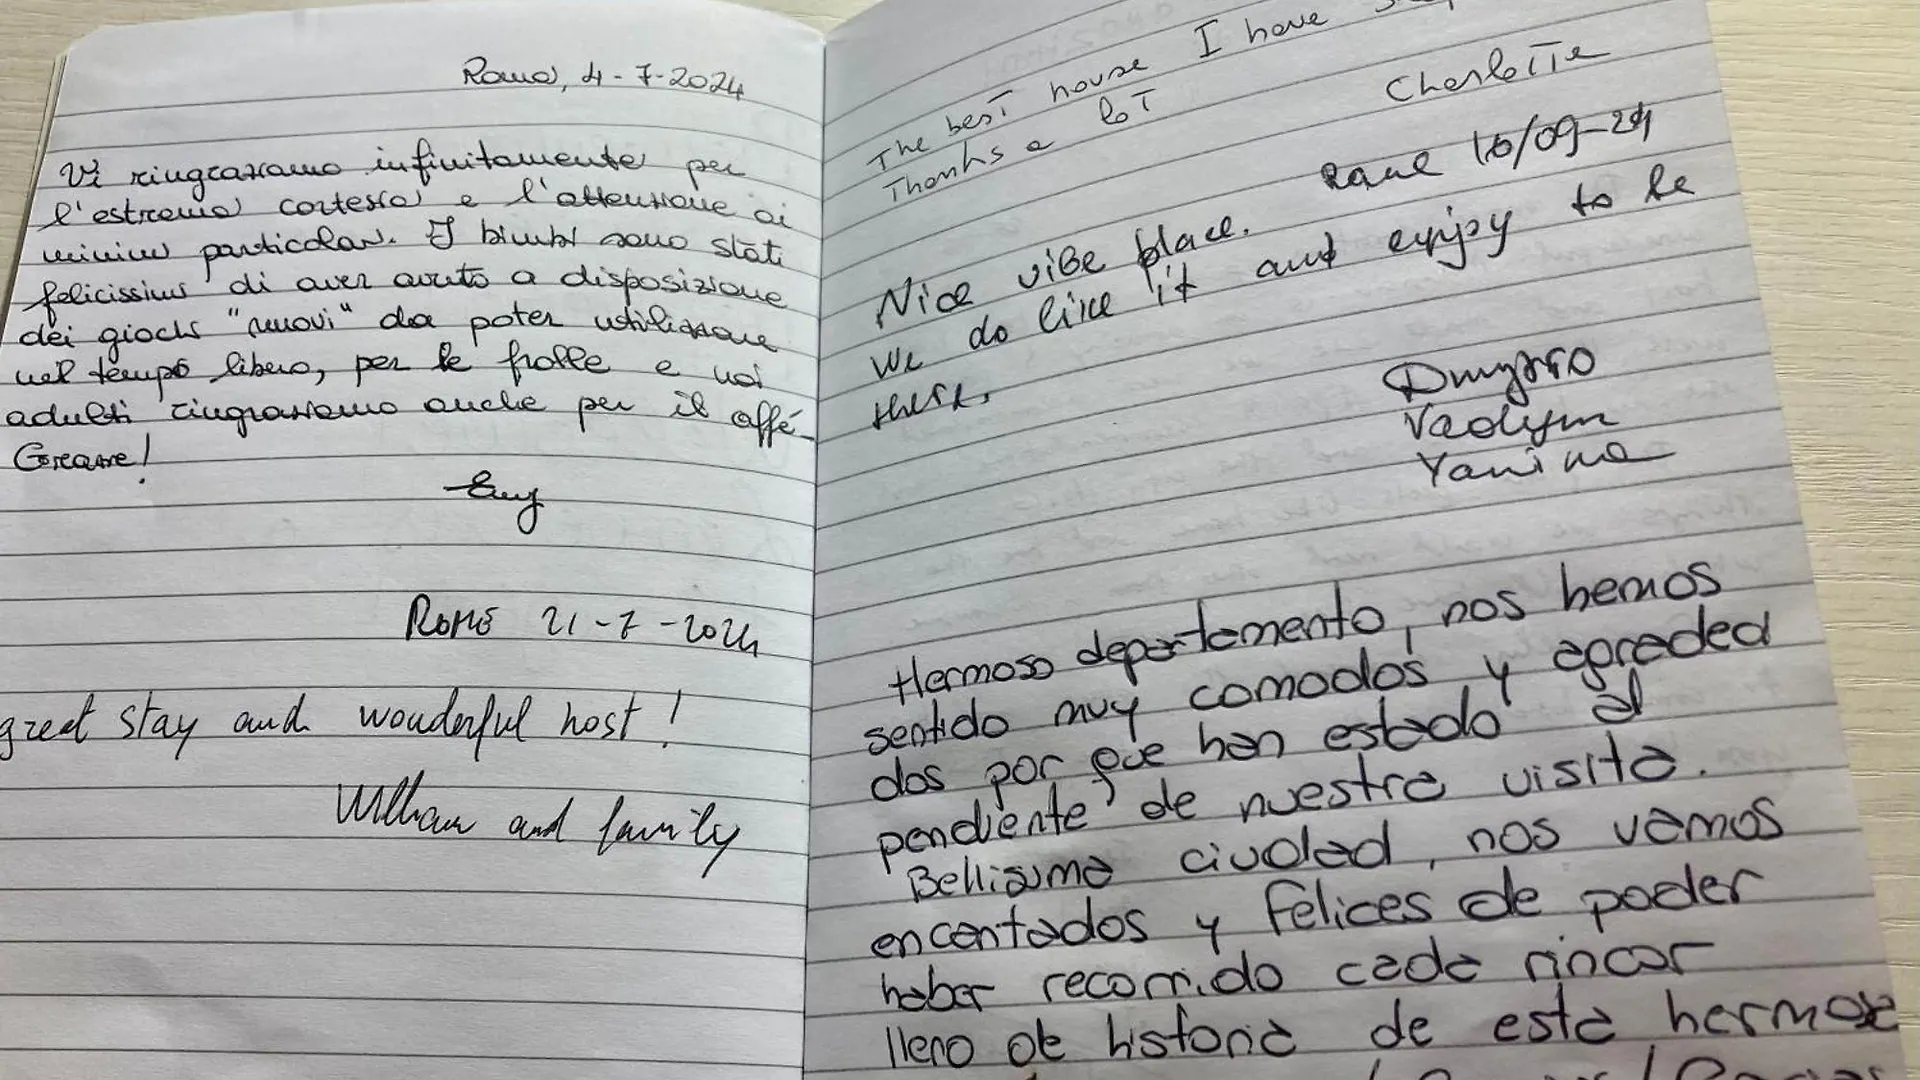 Roma, 4-7-2024
Vi ringraziamo infinitamente per
l'estrema cortesia e l'attenzione ai
minimi particolari. I bimbi sono stati
felicissimi di aver avuto a disposizione
dei giochi "nuovi" da poter utilizzare
nel tempo libero, per le frolle e noi
adulti ringraziamo anche per il caffé.
Grazie!
Rome 21-7-2024
great stay and wonderful host!
William and family
The best house I have
Thanks a lot
Charlotte
10/09-24
Nice vibe place.
We do like it and enjoy to be
there.
Dmytro
Vadym
Yanina
Hermoso departamento, nos hemos
sentido muy comodos y agradeci
dos por que han estado al
pendiente de nuestra visita.
Bellisima ciudad, nos vamos
encantados y felices de poder
haber recorrido cada rincon
lleno de historia de esta hermosa